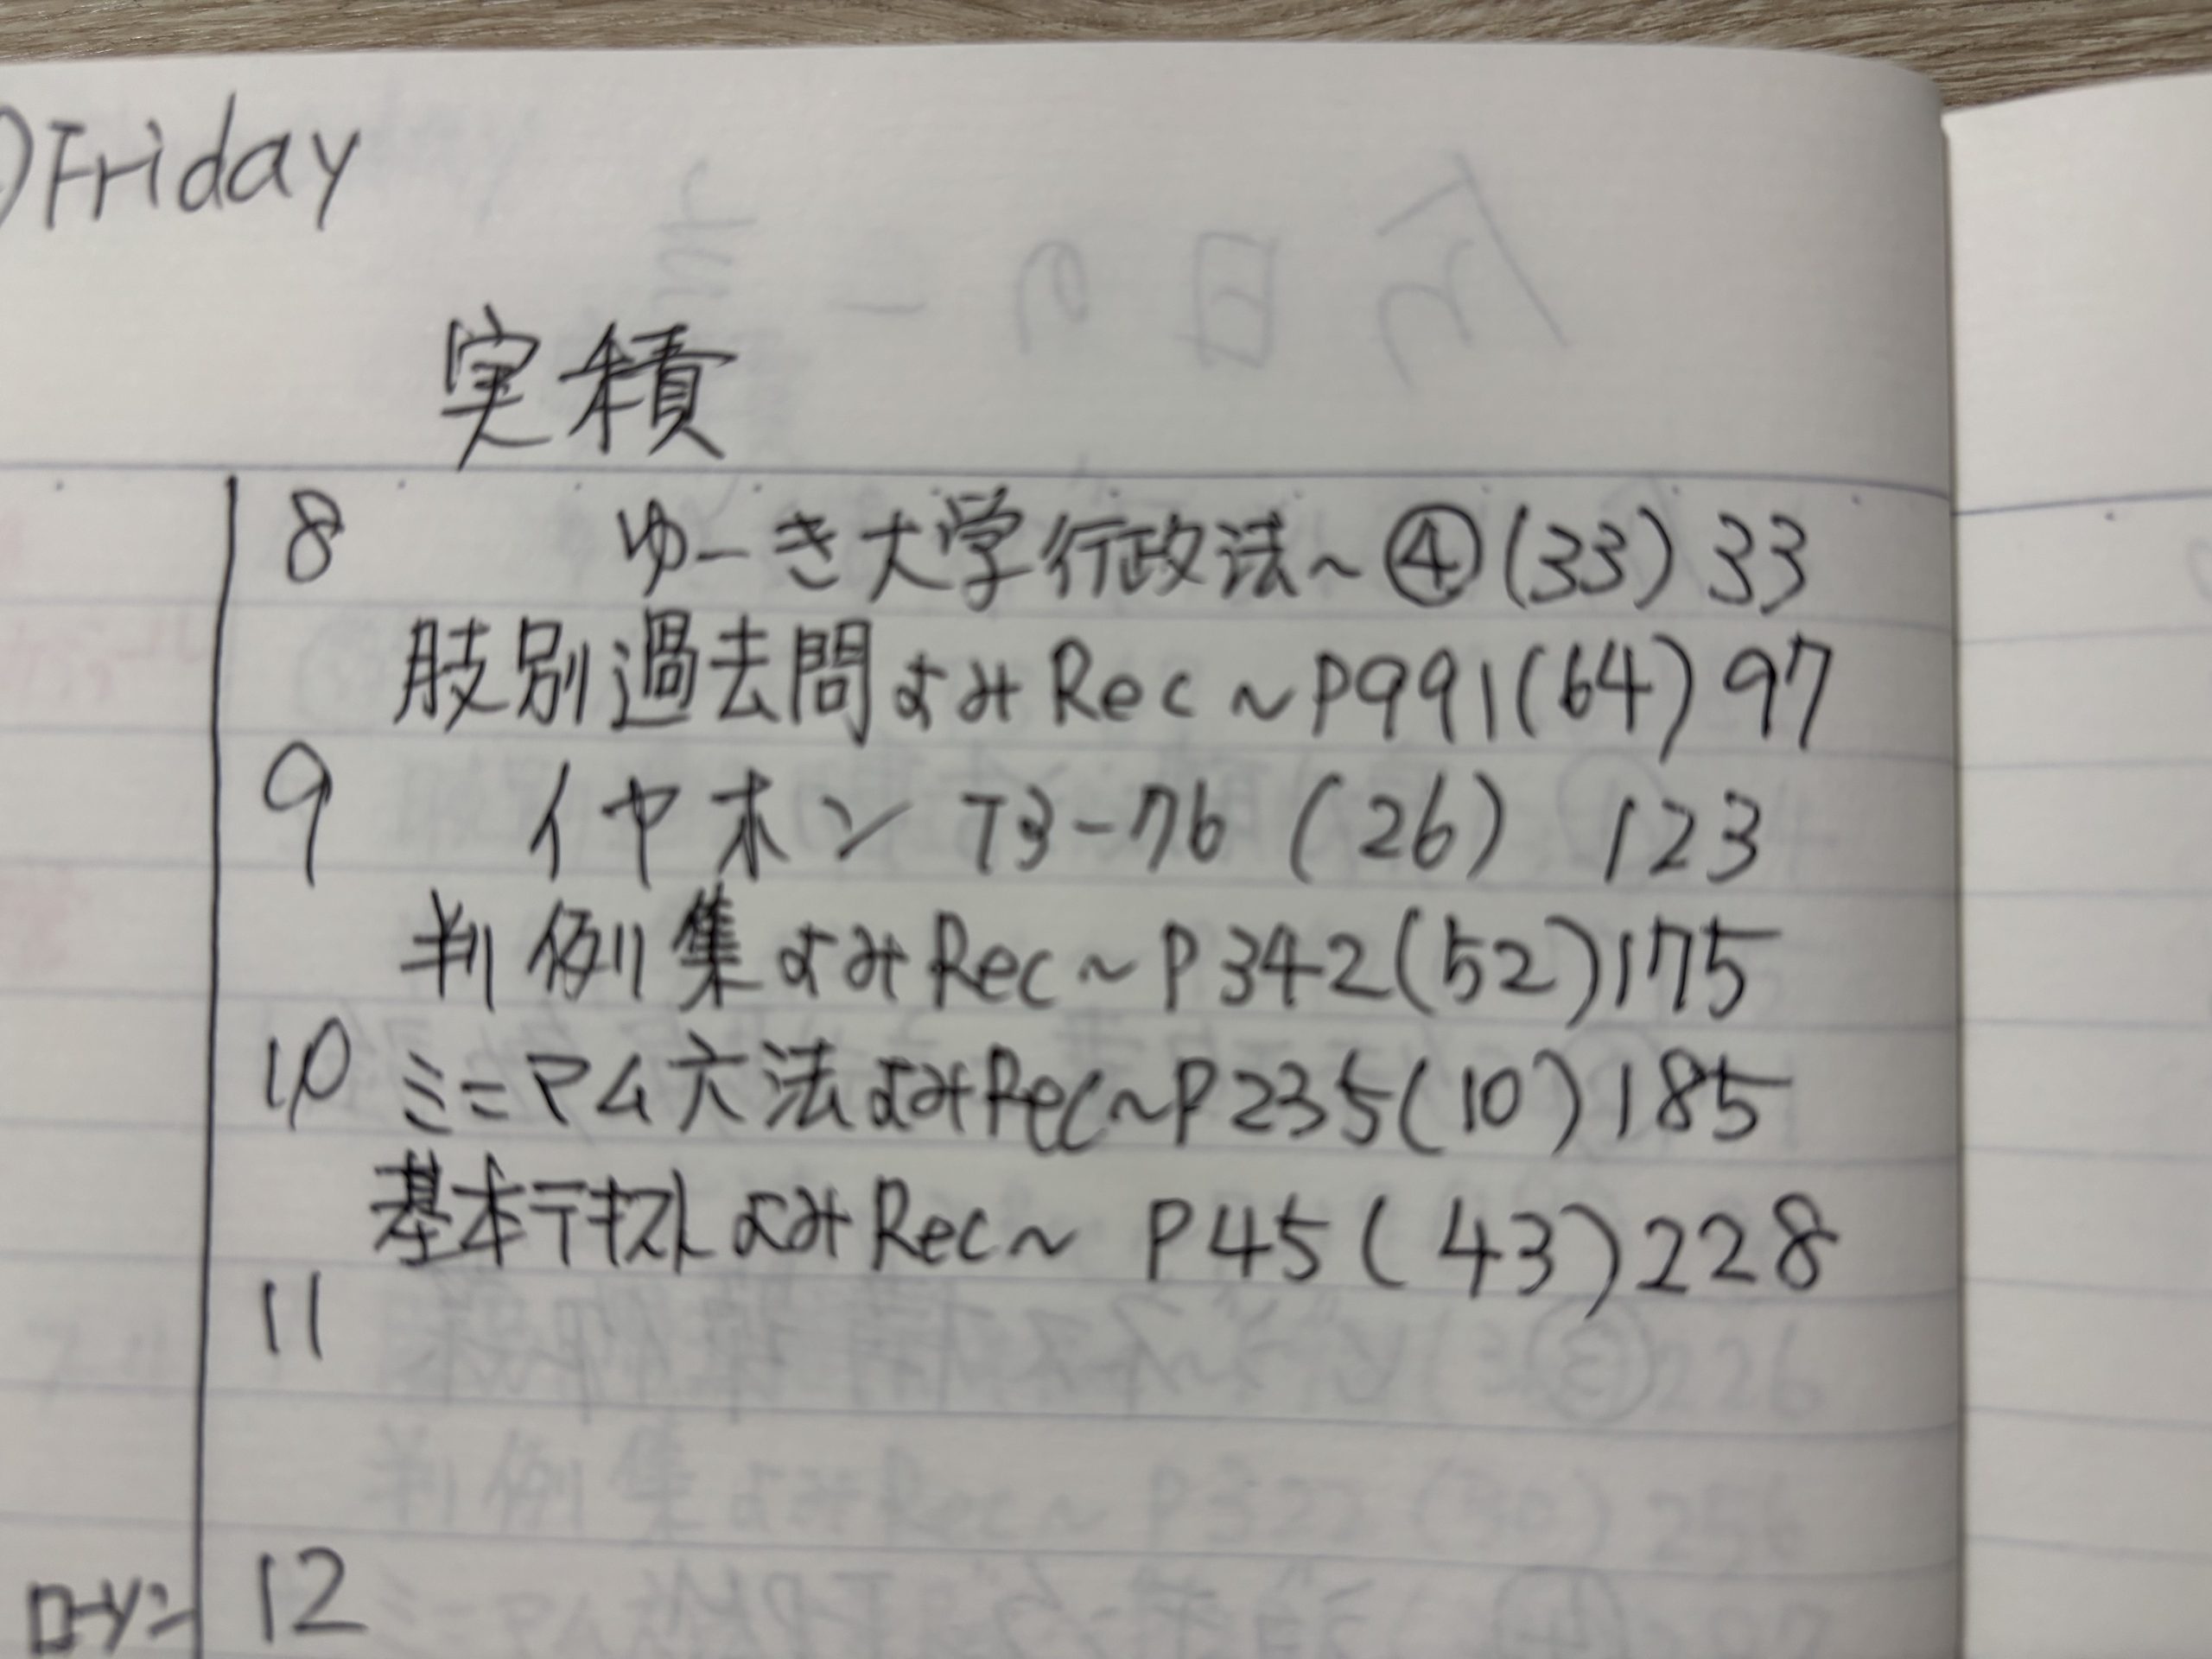 Friday
実積
8 ゆーき大学行政法~④(33)33
肢別過去問よみRec~P991(64)97
9 イヤホン T3-76 (26) 123
判例集よみRec~P342(52)175
10 ミニマム六法よみRec~P235(10)185
基本テキストよみRec~ P45(43)228
11
12